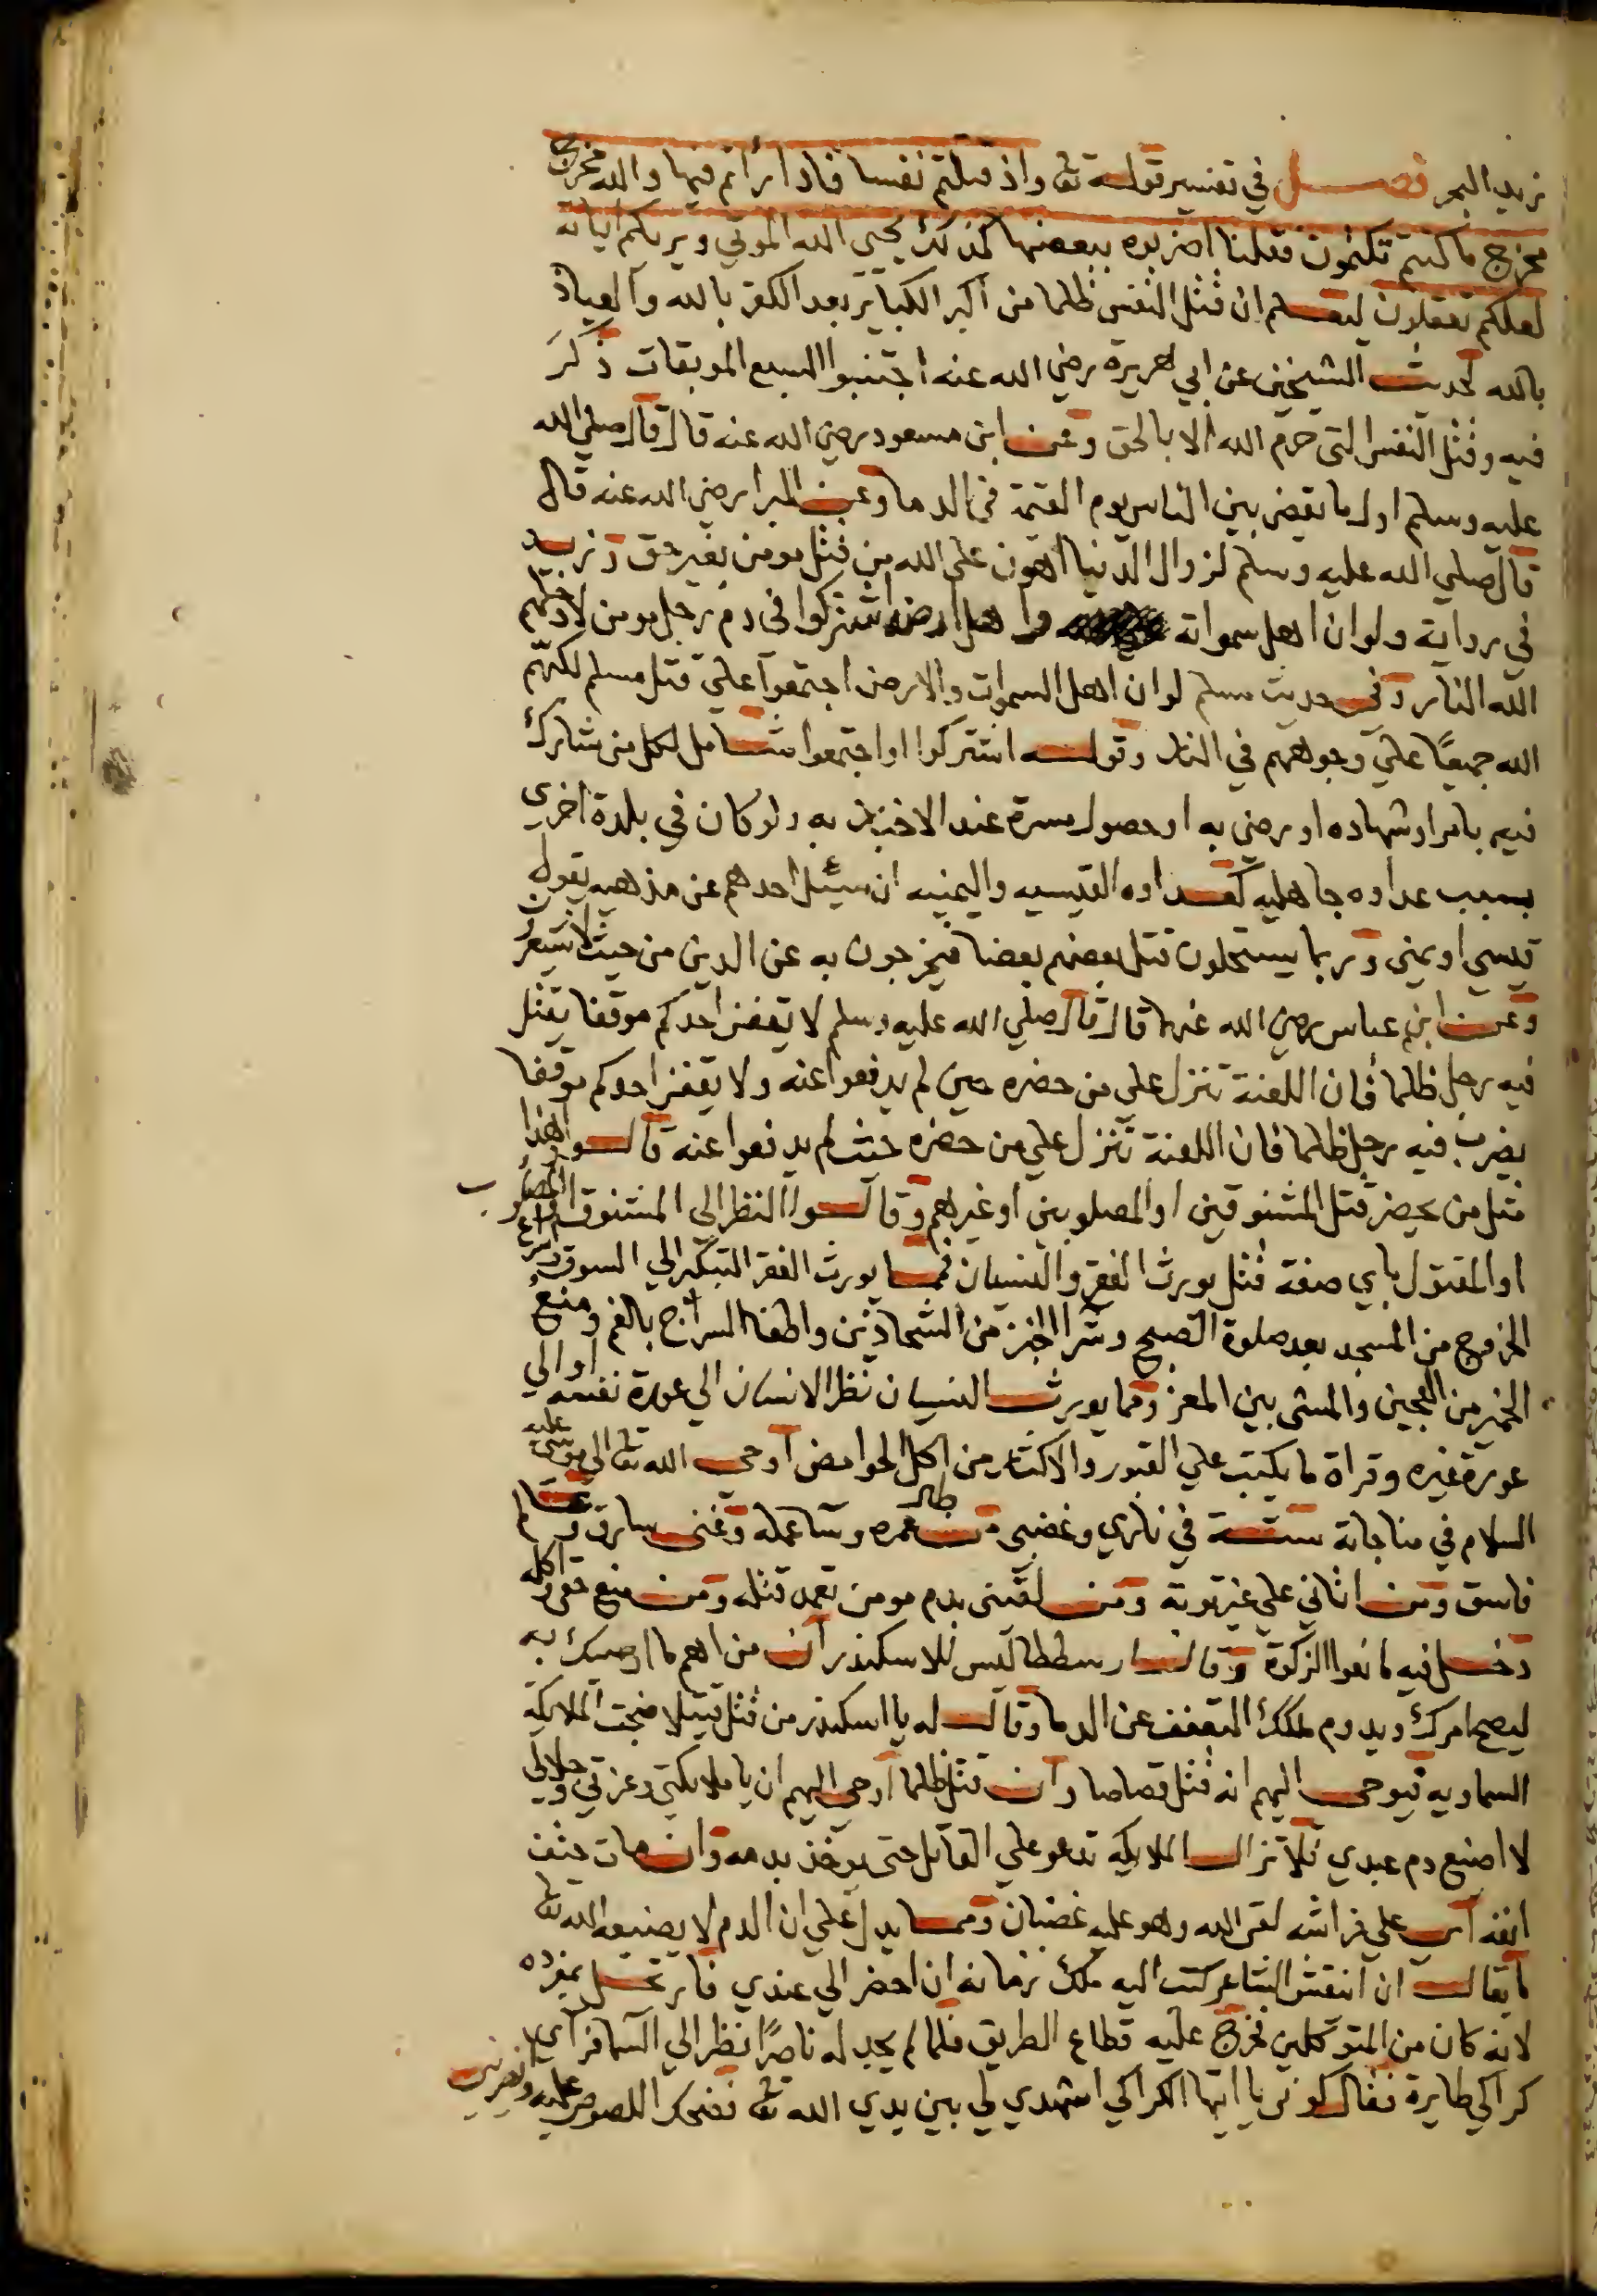 زبد البحر فصل في تفسير قوله تعا واذ قتلتم نفسا فادارأتم فيها والله مخرج
مخرج ما كنتم تكتمون فقلنا اضربوه ببعضها كذلك يحيى الله الموتي ويريكم اياته
لعلكم تعقلون ليعلم ان قتل النفس ظلما من أكبر الكبائر بعد الكفر بالله والعياذ
بالله لحديث الشيخين عن ابي هريرة رضي الله عنه اجتنبوا السبع الموبقات ذكر
فيه وقتل النفس التي حرم الله الا بالحق وعن ابن مسعود رضي الله عنه قال قال صلي الله
عليه وسلم اول ما يقضى بين الناس يوم القيمة في الدما وعن البرا رضي الله عنه قال
قال صلي الله عليه وسلم لزوال الدنيا اهون على الله من قتل مومن بغير حق وزيد
في رواية ولو ان اهل سمواته واهل ارضه اشتركوا في دم رجل مومن لادخلهم
الله النار وفي حديث مسلم لو ان اهل السموات والارض اجتمعوا علي قتل مسلم لكبهم
الله جميعًا علي وجوههم في النار وقوله اشتركوا او اجتمعوا شامل لكل من شارك
فيه بامر او شهاده او رضي به او حصول مسرة عند الاخبار به ولو كان في بلدة اخري
بسبب عداوه جاهليه كعداوه القيسيه واليمنيه ان سئل احدهم عن مذهبه يقول
قيسي او يمني وربما يستحلون قتل بعضهم بعضا فيخرجون به عن الدين من حيث لا يشعرون
وعن ابن عباس رضي الله عنهما قال قال صلي الله عليه وسلم لا يقفن احدكم موقفا يقتل
فيه رجل ظلما فان اللعنة تنزل على من حضره حين لم يدفعوا عنه ولا يقفن احدكم موقفا
يضرب فيه رجل ظلما فان اللعنة تنزل علي من حضره حيث لم يدفعوا عنه قالوا هذا
مثل من يحضر قتل المشنوقين او المصلوبين او غيرهم وقالوا النظر الى المشنوق او المصلوب
او المقتول باي صفة قتل يورث الفقر والنسيان فمما يورث الفقر التبكير الي السوق وسرعة
الخروج من المسجد بعد صلوة الصبح وشرا الخبز من الشحاذين واطفا السراج بالفم ومنع
الخمير من العجين والمشي بين المعز ومما يورث النسيان نظر الانسان الي عورة نفسه او الي
عورة غيره وقراة ما يكتب علي القبور والاكثار من اكل الحوامض اوحى الله تعا الي موسى عليه
السلام في مناجاته ستة في ناري وغضبي من طال عمره وسآ عمله وغني سارق وعالم
فاسق ومن اتاني علي غير توبة ومن لقيني بدم مومن تعمد قتله ومن منع حق واكله
دخل فيه مانعوا الزكوة وقال ارسططاليس للاسكندر ان من اهم ما اوصيك به
ليصح امرك ويدوم ملكك التعفف عن الدما وقال له يا اسكندر من قتل قتيلا ضجت الملايكة
السماويه فيوحى اليهم انه قتل قصاصا وان قتل ظلما اوحي اليهم ان يا ملايكتي وعزتي وجلالي
لا اضيع دم عبدي فلا تزال الملايكه تدعو علي القاتل حتى يوخذ بدمه وان مات حتف
انفه اي علي فراشه لقى الله وهو عليه غضبان ومما يدل علي ان الدم لا يضيعه الله تعا
ما يقال ان انقش الشاعر كتب اليه ملك زمانه ان احضر الي عندي فارتحل بمفرده
لانه كان من المتوكلين فخرج عليه قطاع الطريق فلما لم يجد له ناصرًا نظر الي السما فرآي
كراكي طايرة فقال كونوا يا ايتها الكراكي اشهدي لي بين يدي الله تعا فضحكر اللصوص عليه